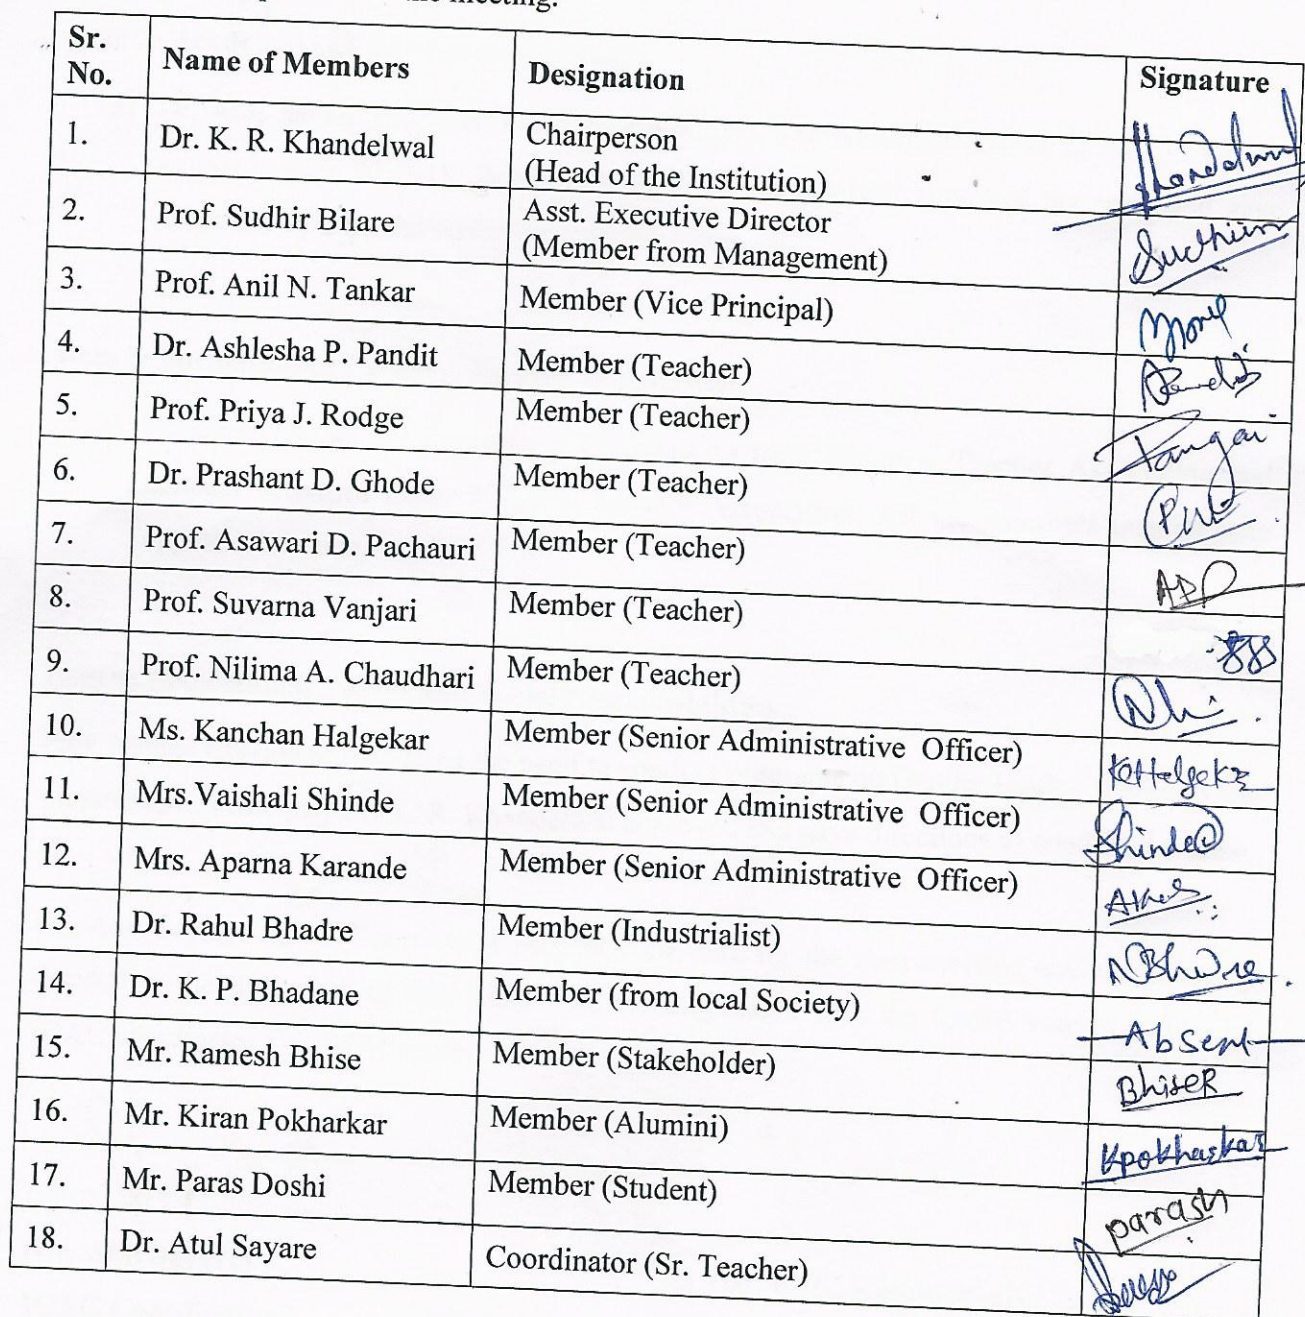 meeting.
Sr. No. Name of Members Designation Signature
1. Dr. K. R. Khandelwal Chairperson (Head of the Institution) Khandelwal
2. Prof. Sudhir Bilare Asst. Executive Director (Member from Management) Sudhir
3. Prof. Anil N. Tankar Member (Vice Principal)
4. Dr. Ashlesha P. Pandit Member (Teacher)
5. Prof. Priya J. Rodge Member (Teacher)
6. Dr. Prashant D. Ghode Member (Teacher)
7. Prof. Asawari D. Pachauri Member (Teacher) ADP
8. Prof. Suvarna Vanjari Member (Teacher)
9. Prof. Nilima A. Chaudhari Member (Teacher)
10. Ms. Kanchan Halgekar Member (Senior Administrative Officer)
11. Mrs.Vaishali Shinde Member (Senior Administrative Officer) Shinde
12. Mrs. Aparna Karande Member (Senior Administrative Officer)
13. Dr. Rahul Bhadre Member (Industrialist)
14. Dr. K. P. Bhadane Member (from local Society) —Absent—
15. Mr. Ramesh Bhise Member (Stakeholder) BhiseR
16. Mr. Kiran Pokharkar Member (Alumini) Kpokharkar
17. Mr. Paras Doshi Member (Student) parash
18. Dr. Atul Sayare Coordinator (Sr. Teacher)